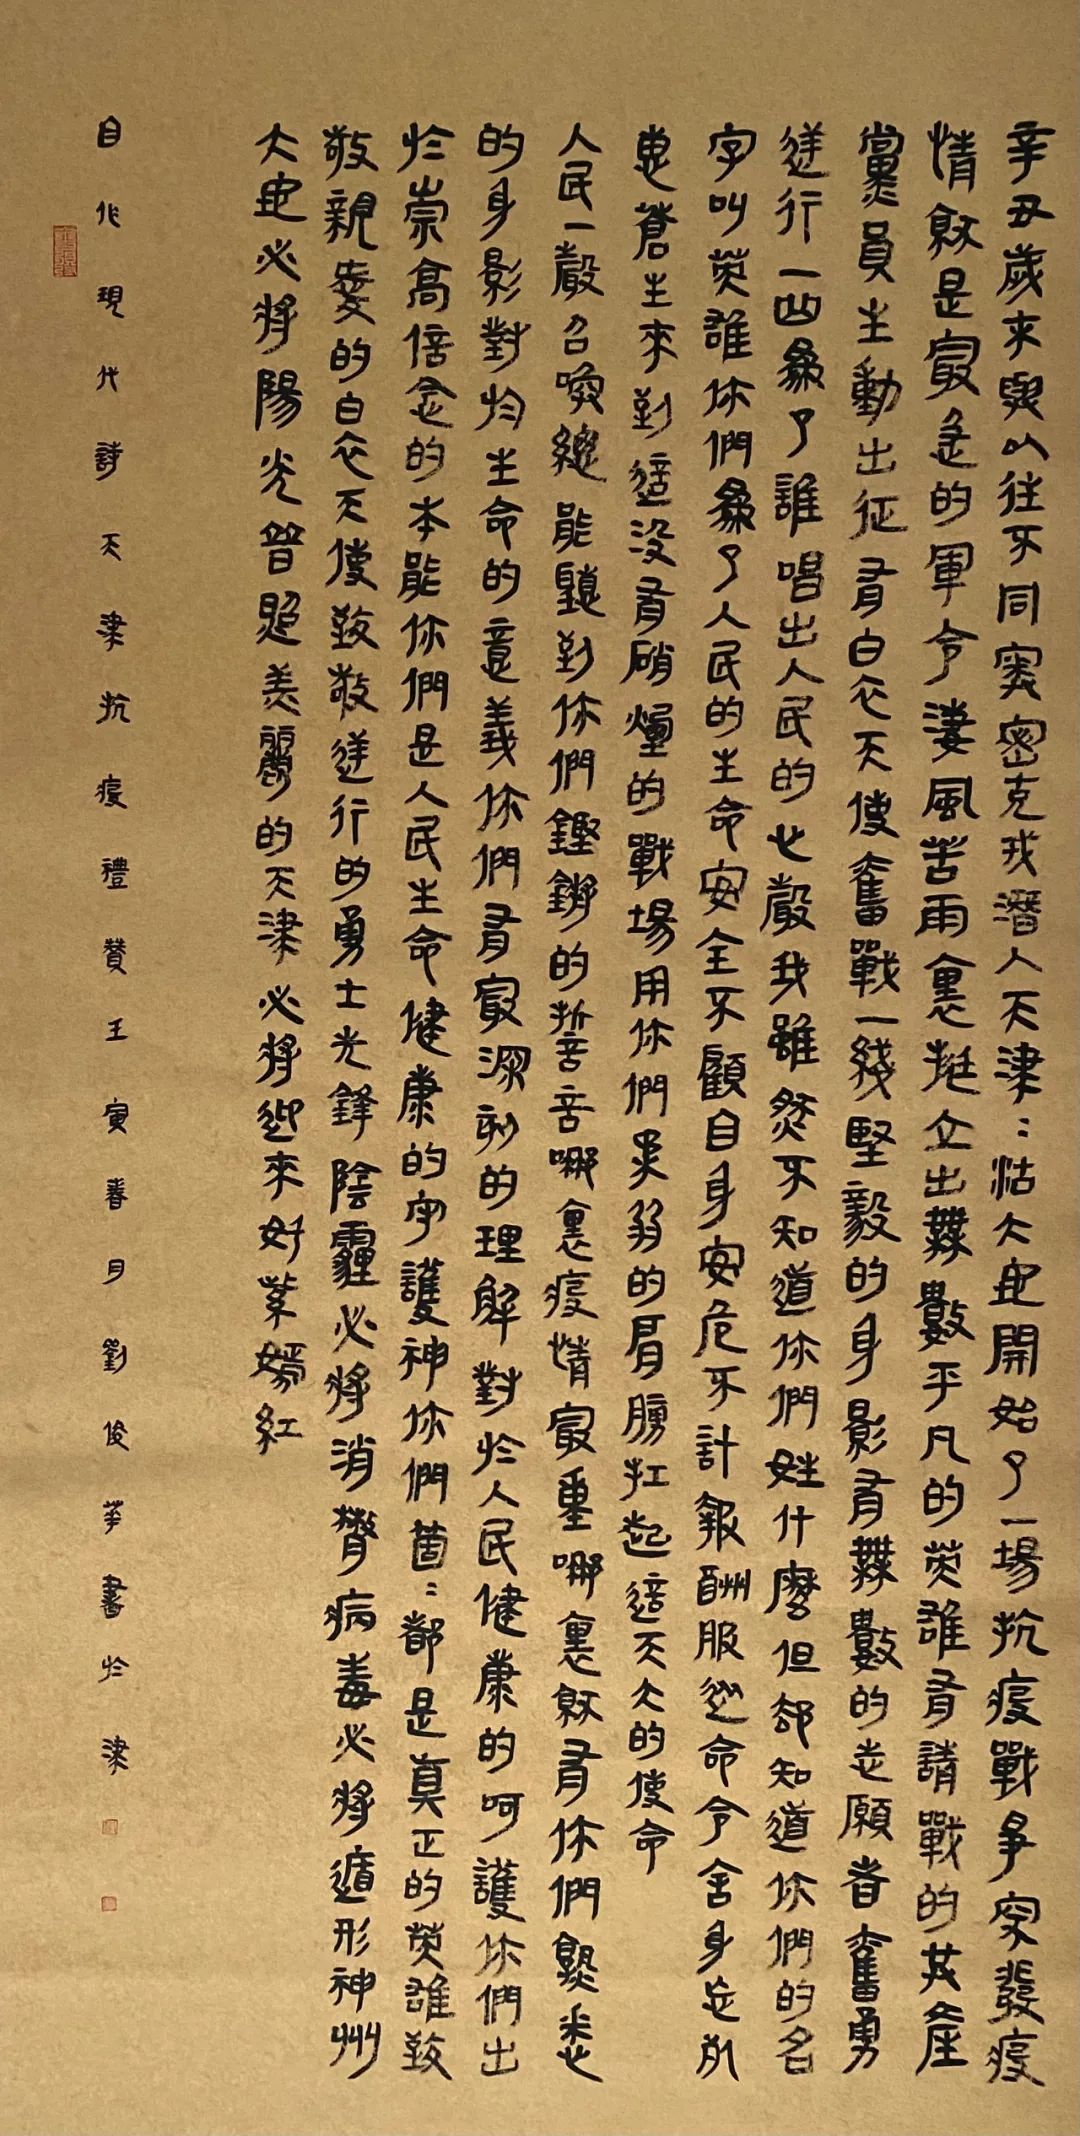 辛丑歲末與以往不同奧密克戎潛入天津ːː沽大地開始了一場抗疫戰爭突發疫
情就是最急的軍令淒風苦雨裏挺立出無數平凡的英雄有請戰的共產
黨員主動出征有白衣天使奮戰一綫堅毅的身影有無數的志願者奮勇
逆行一幽為了誰唱出人民的心聲我雖然不知道你們姓什麼但却知道你們的名
字叫英雄你們為了人民的生命安全不顧自身安危不計報酬服從命令舍身忘我
惠蒼生來到這没有硝煙的戰場用你們柔弱的肩膀扛起這天大的使命
人民一聲召喚總能聽到你們鏗鏘的誓言言哪裏疫情最重哪裏就有你們熟悉
的身影對於生命的意義你們有最深刻的理解對於人民健康的呵護你們出
於崇高信念的本能你們是人民生命健康的守護神你們箇ː都是真正的英雄致
敬親愛的白衣天使致敬逆行的勇士先鋒陰霾必將消聲病毒必將遁形神州
大地必將陽光普照美麗的天津必將迎來奼紫嫣紅
自作現代詩天津抗疫禮贊壬寅春月劉俊華書於津